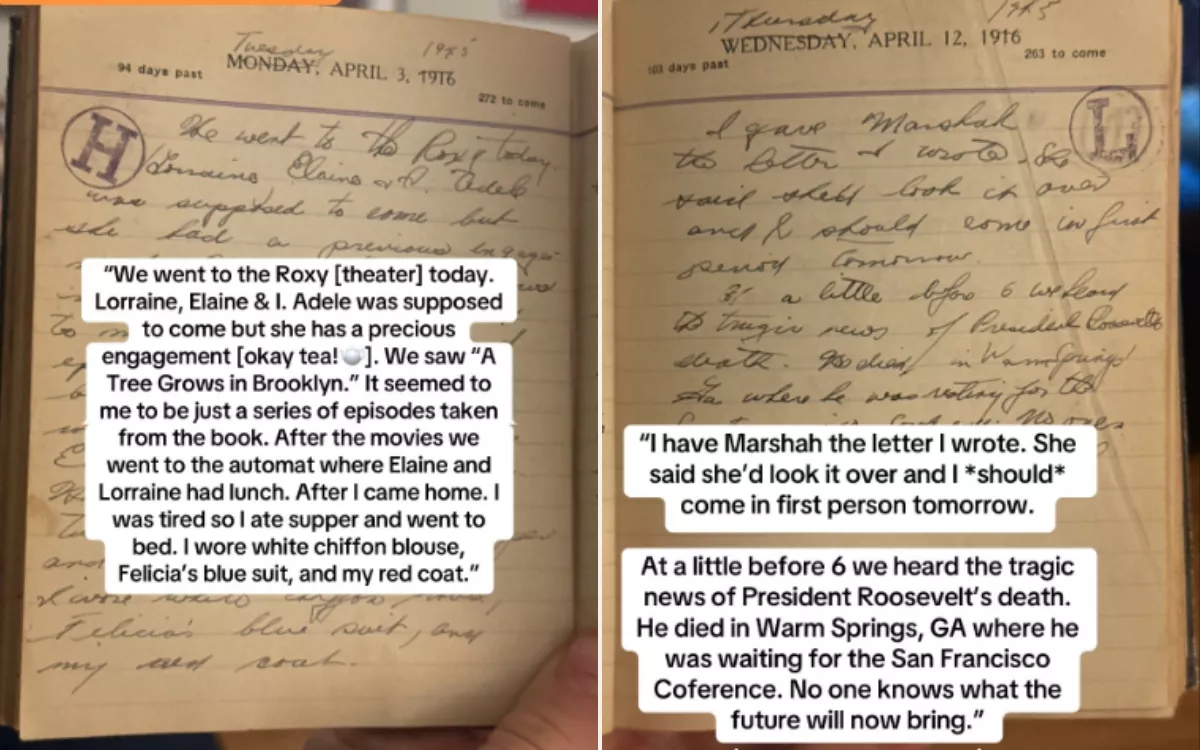 Tuesday 1945
MONDAY, APRIL 3, 1916
94 days past
272 to come
H
We went to the Roxy today.
Lorraine, Elaine & I. Adele
was supposed to come but
she had a previous engage-
“We went to the Roxy [theater] today.
Lorraine, Elaine & I. Adele was supposed
to come but she has a precious
engagement [okay tea!🍵]. We saw “A
Tree Grows in Brooklyn.” It seemed to
me to be just a series of episodes taken
from the book. After the movies we
went to the automat where Elaine and
Lorraine had lunch. After I came home. I
was tired so I ate supper and went to
bed. I wore white chiffon blouse,
Felicia’s blue suit, and my red coat.”
I wore white
Felicia's blue suit, and
my red coat.
Thursday 1945
WEDNESDAY, APRIL 12, 1916
103 days past
263 to come
L
I gave Marshak
the letter I wrote. She
said she'd look it over
and I should come in first
period tomorrow.
At a little before 6 we heard
the tragic news of President Roosevelt's
death. He died in Warm Springs
Ga where he was resting for the
No one
“I have Marshah the letter I wrote. She
said she’d look it over and I *should*
come in first person tomorrow.
At a little before 6 we heard the tragic
news of President Roosevelt’s death.
He died in Warm Springs, GA where he
was waiting for the San Francisco
Coference. No one knows what the
future will now bring.”